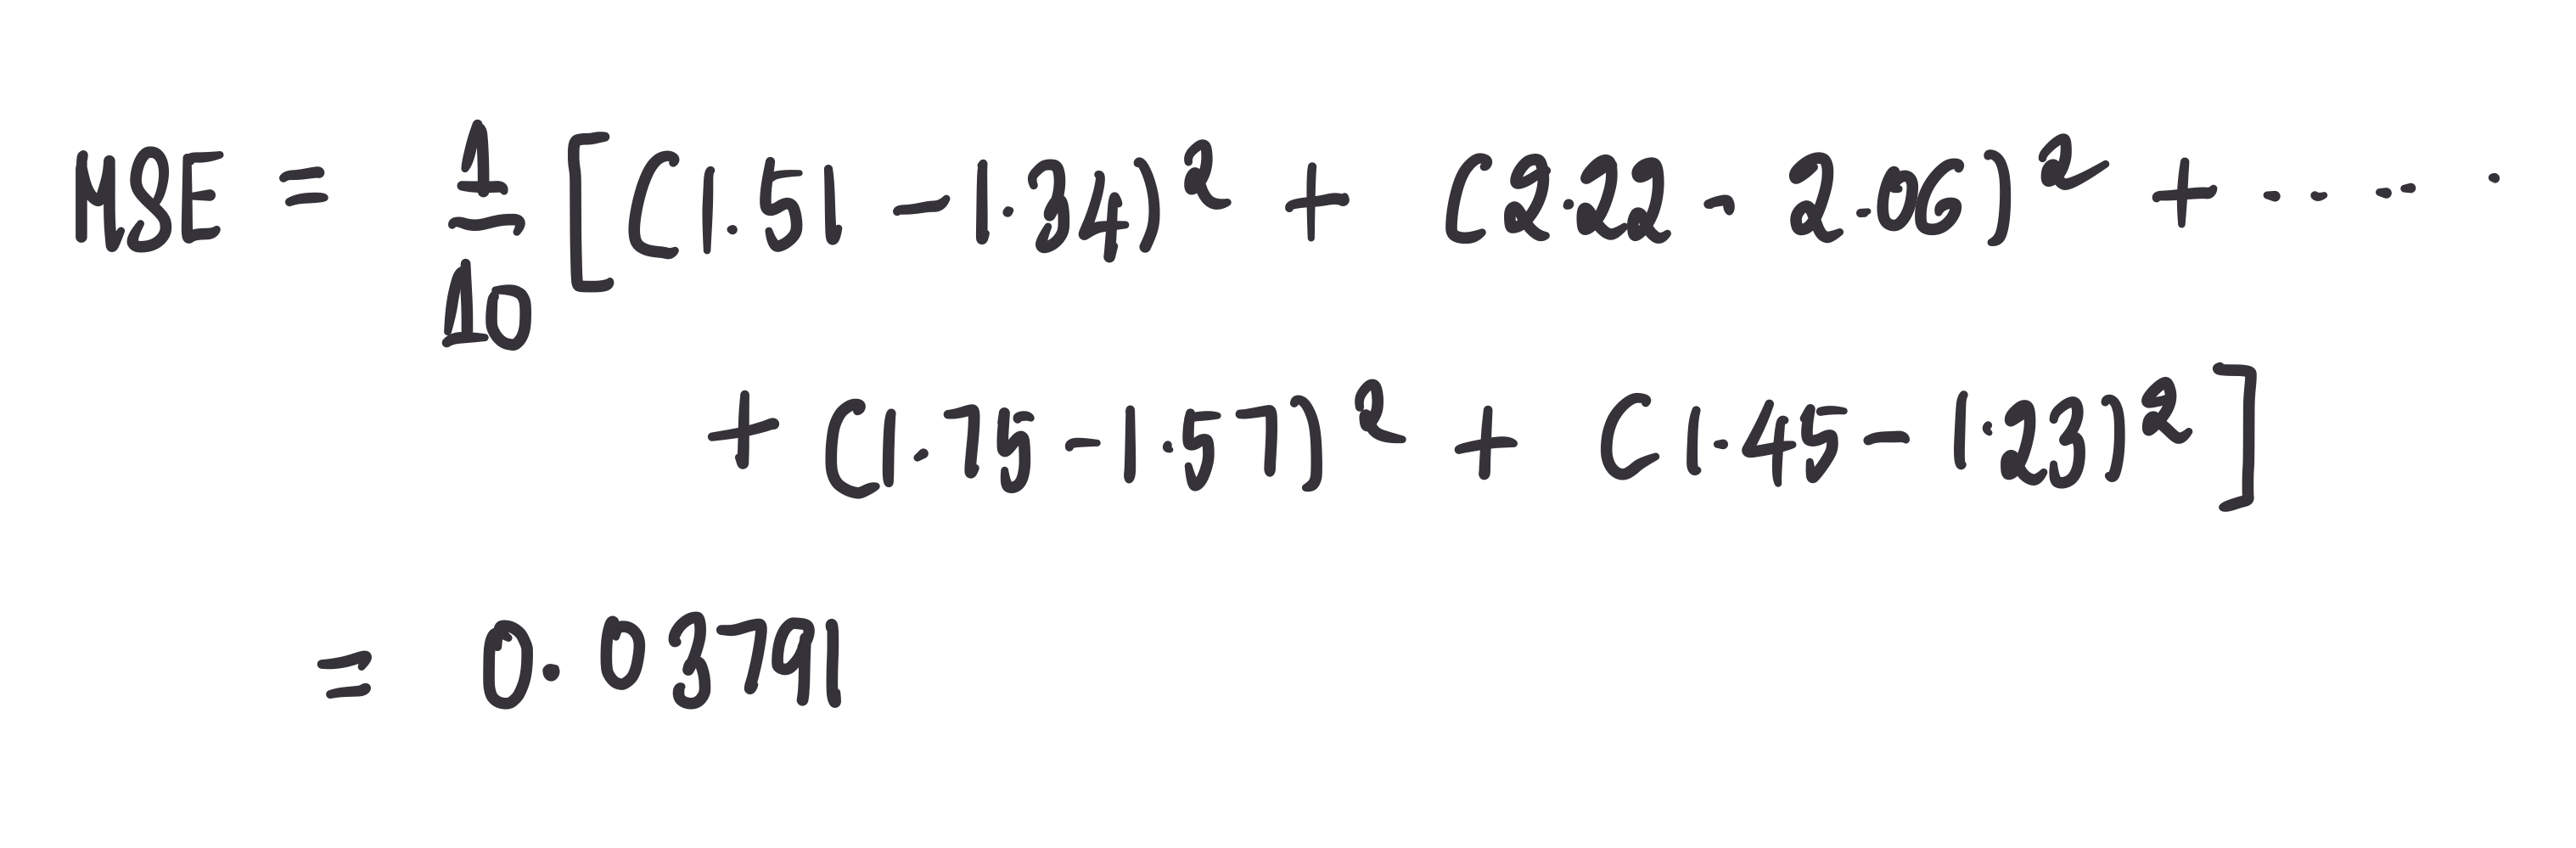 MSE = 1/10 [(1.51 - 1.34)² + (2.22 - 2.06)² + ..... .
+ (1.75 - 1.57)² + (1.45 - 1.23)²]
= 0.03791